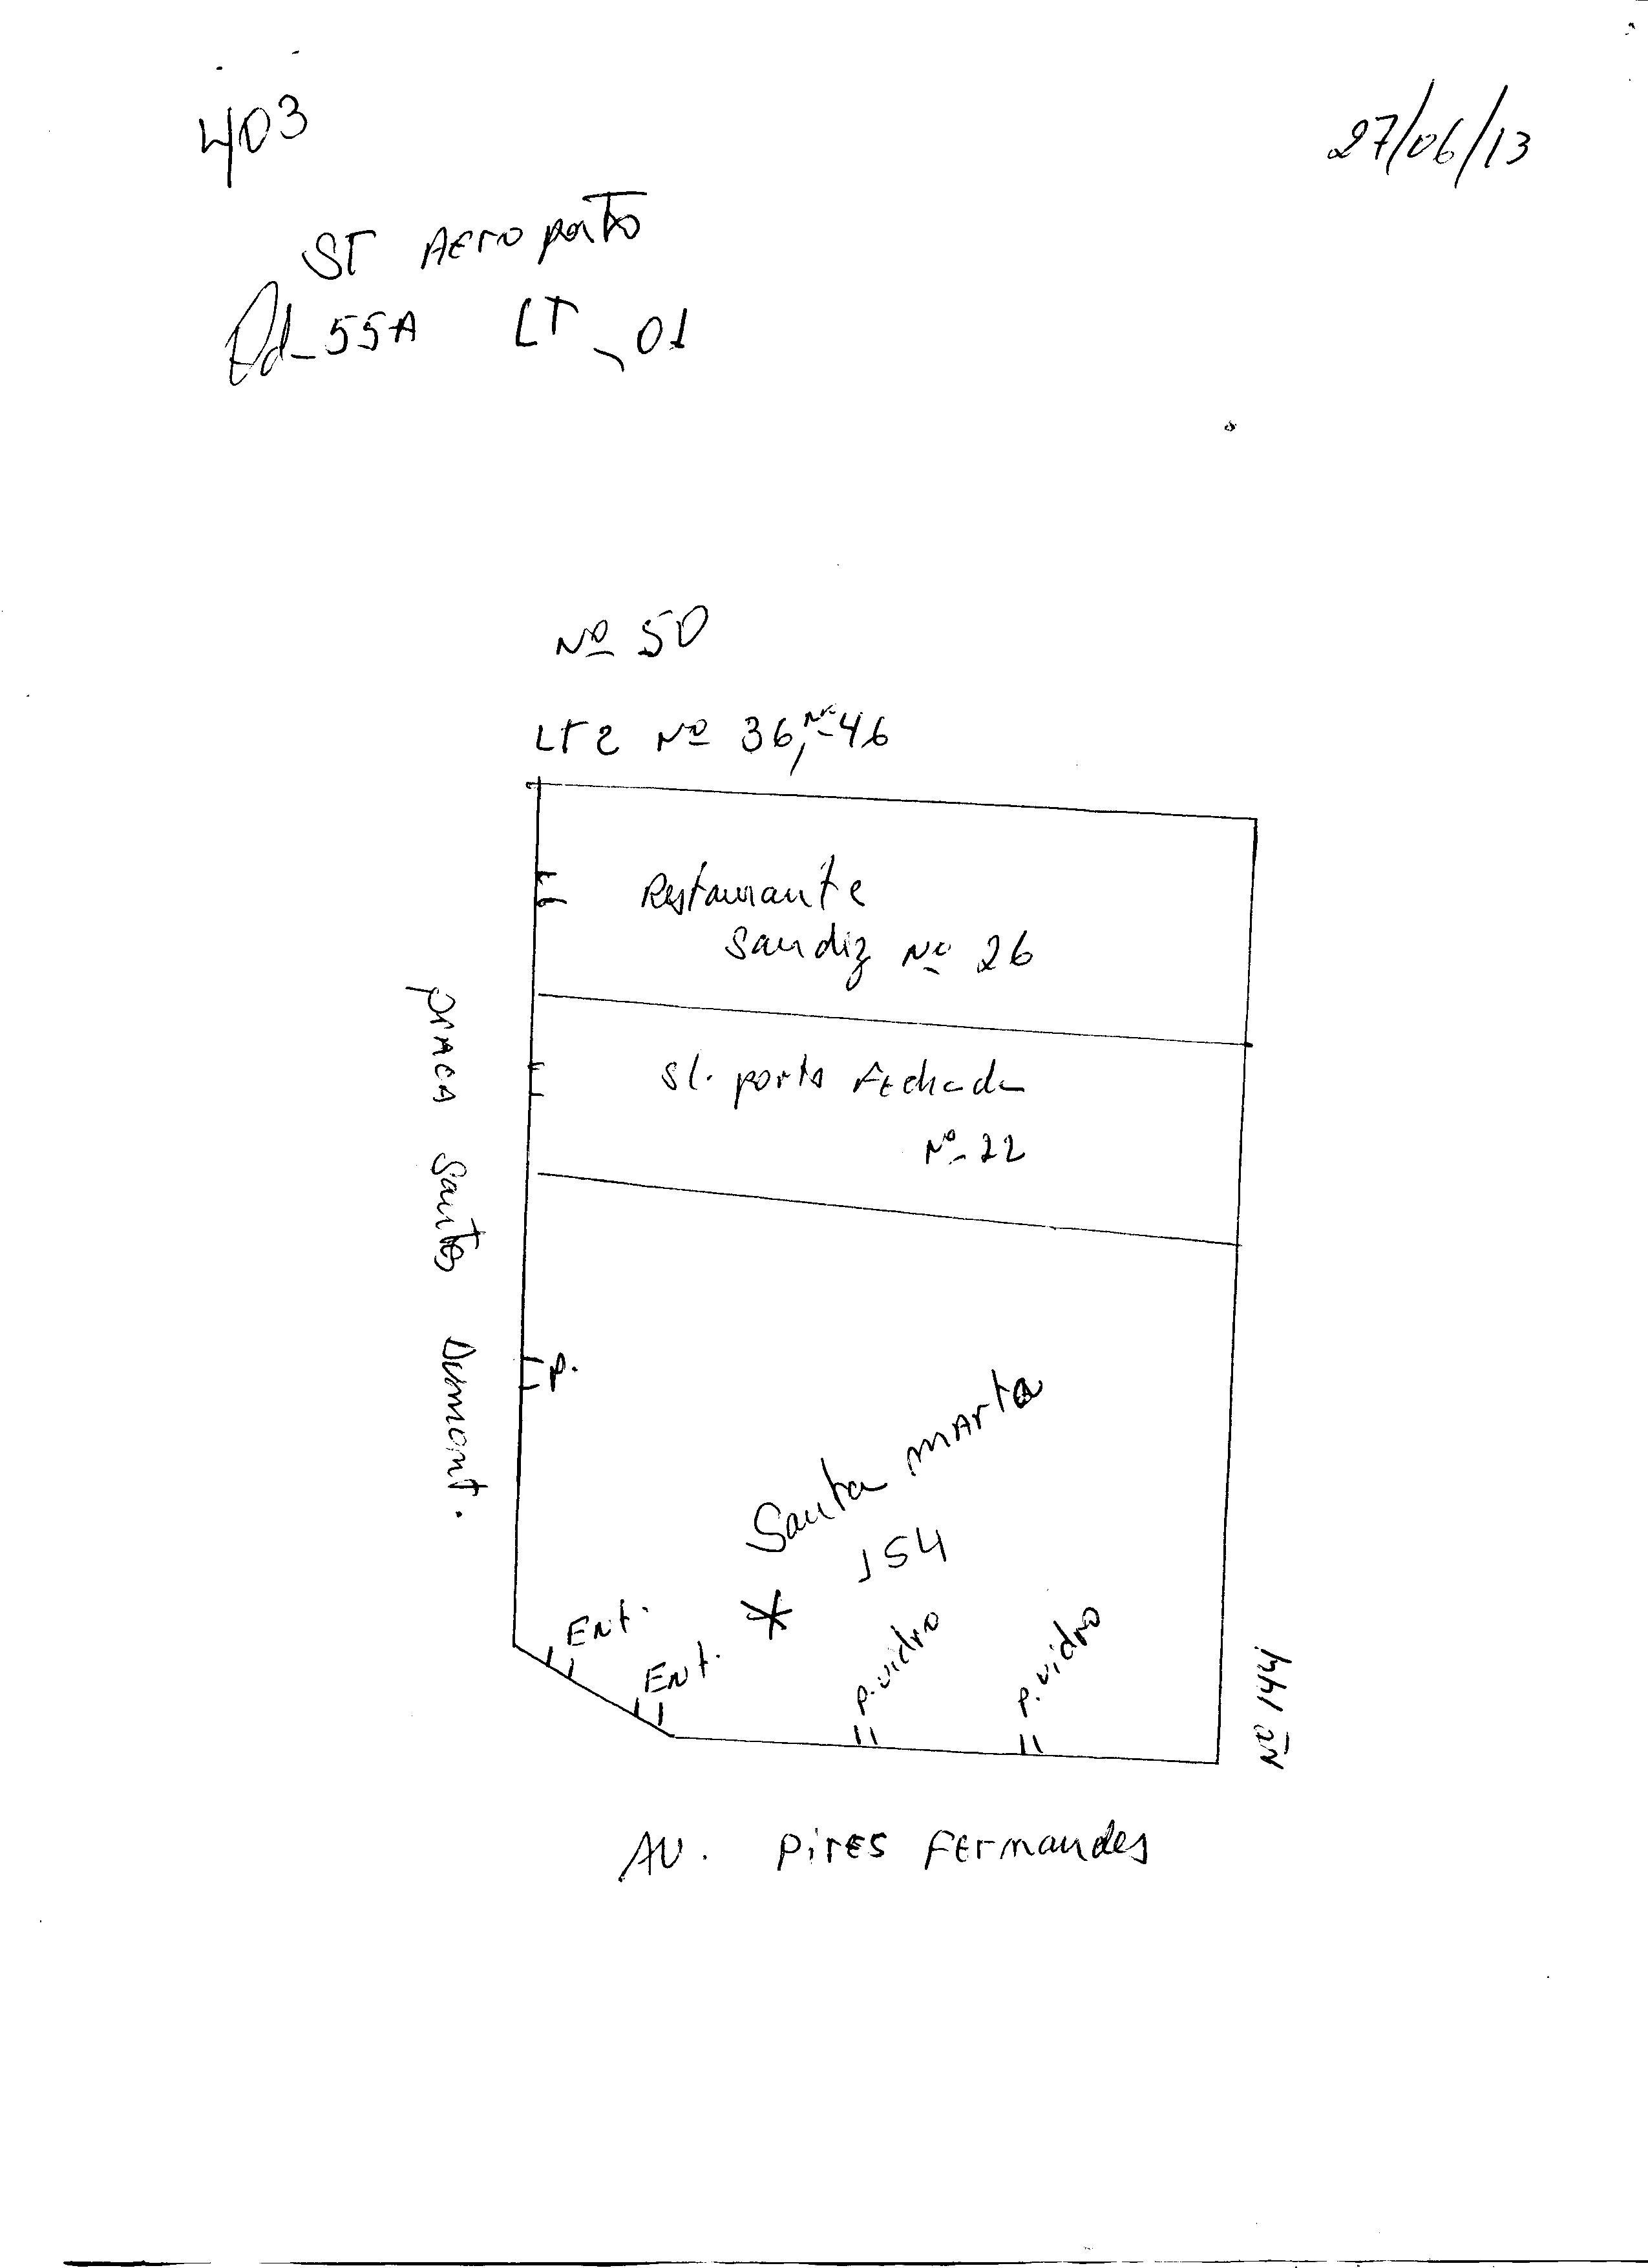 403
27/06/13
ST AEroporto
Qd_55A LT_01
Nº 50
LT 2 Nº 36, Nº 46
Restaurante
Sandiz Nº 26
Sl. porta Fechada
Nº 22
prAcA Santos Dumont.
p.
Santa mArta
154
*
Ent.
Ent.
p. vidro
p. vidro
Nº 144
AV. pirES FErnandes